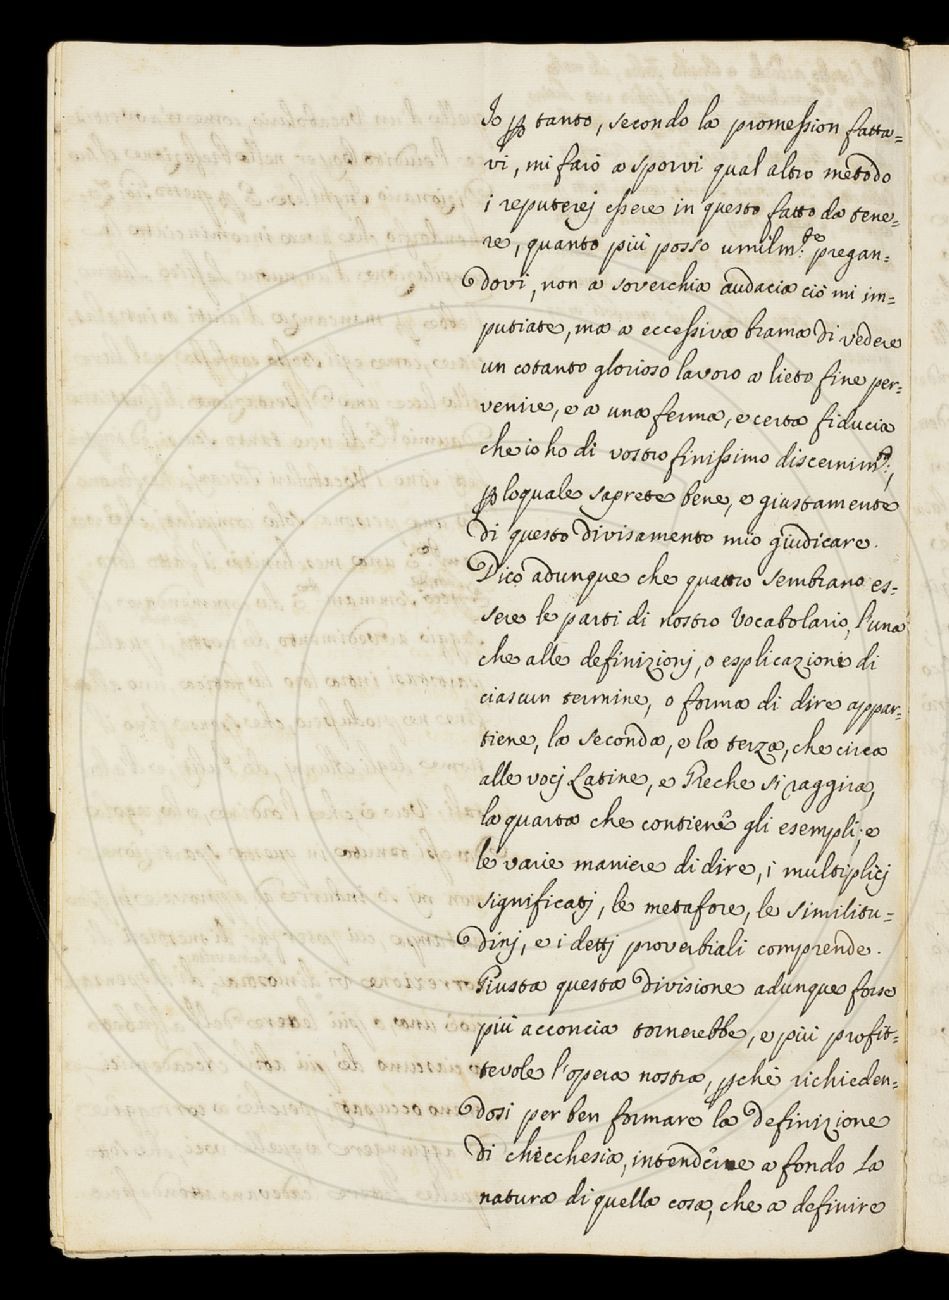 Io ꝑ tanto, secondo la promession fatta=
vi, mi farò a sporvi qual altro metodo
i reputerej essere in questo fatto da tene=
re, quanto più posso umilm:te pregan=
dovi, non a soverchia audacia ciò mi im=
putiate, ma a eccessiva brama di vedere
un cotanto glorioso lavoro a lieto fine per=
venire, e a una ferma, e certa fiducia
che io ho di vostro finissimo discernim:to;
ꝑ loquale saprete bene, e giustamente
di questo divisamento mio giudicare.
Dico adunque che quattro sembrano es=
sere le parti di nostro Vocabolario, l'una
che alle definizionj, o esplicazioni di
ciascun termine, o forma di dire appar=
tiene, la seconda, e la terza, che circa
alle vocj Latine, e Greche si raggira,
la quarta che contiene gli esempli, e
le varie maniere di dire, i multiplicj
significatj, le metafore, le similitu=
dinj, e i dettj proverbiali comprende.
Giusta questa divisione adunque forse
più acconcia tornerebbe, e più profit=
tevole l'opera nostra, ꝑchè richieden=
dosi per ben formare la definizione
di checchesia, intendere a fondo la
natura di quella cosa, che a definire